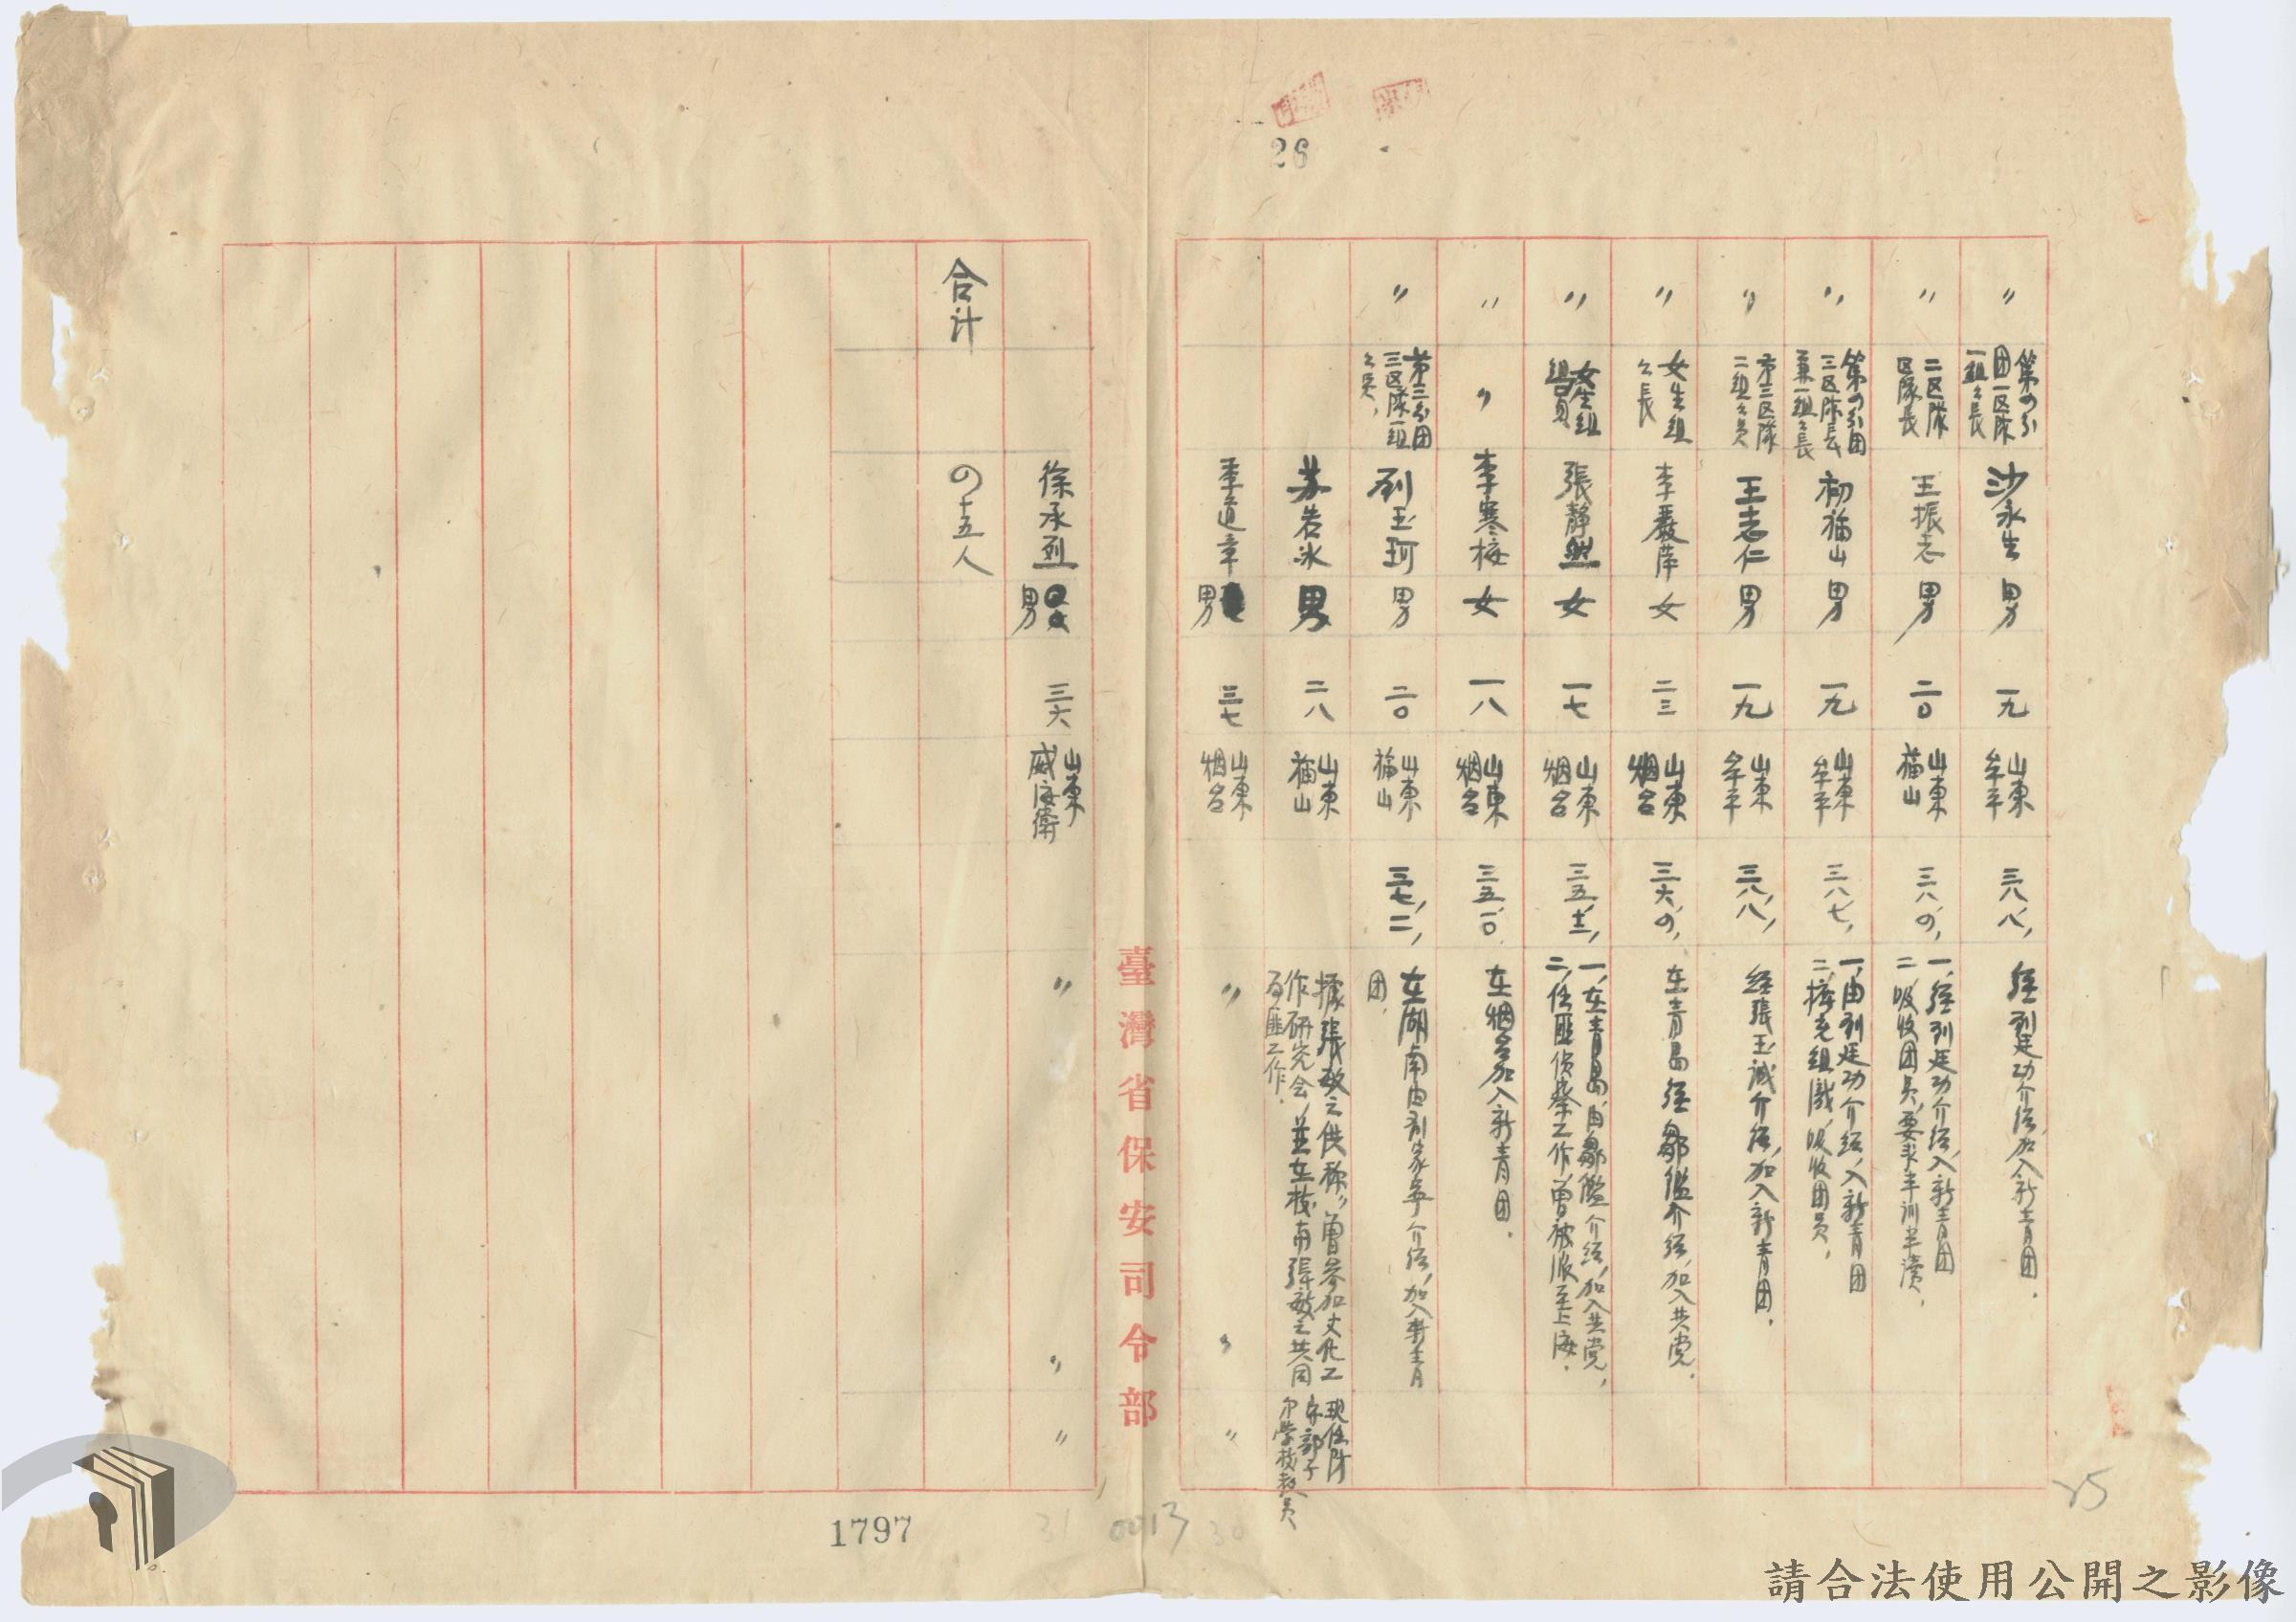 26
〃 第四分团一区隊一組々長 沙永生 男 一九 山東牟平 三八、八、 經刘廷功介紹、加入新青团。
〃 二区隊区隊長 王振志 男 二〇 山東福山 三八、四、 一、經刘廷功介紹、入新青团 二、吸收团員、要求半訓半讀、
〃 第四分团三区隊長兼一組々長 初福山 男 一九 山東牟平 三八、七、 一、由刘廷功介紹、入新青团 二、擴充組織、吸收团員、
〃 第三区隊二組々員 王志仁 男 一九 山東牟平 三八、八、 經張玉誠介紹、加入新青团、
〃 女生組々長 李嚴萍 女 二三 山東烟台 三六、四、 在青島經鄒鑑介紹、加入共党、
〃 女生組組員 張靜然 女 一七 山東烟台 三五、十二、 一、在青島、由鄒鑑介紹、加入共党、 二、任匪偵察工作、曾被派至上海、
〃 〃 李寒梅 女 一八 山東烟台 三五、一〇、 在烟台加入新青团。
〃 第三分团三区隊一組々員、 刘玉珂 男 二〇 山東福山 三七、二、 在湖南由刘家 介紹、加入新青团、
苏若冰 男 二八 山東福山 據張敏之供称、曾参加文化工作研究会、並在校南張敏之共同為匪工作。 現任防守部子弟學校教員
季道章 男 三七 山東烟台 〃 〃 〃
臺灣省保安司令部
徐承烈 男 三六 山東威海衛 〃 〃 〃
合计 四十五人
1797
31 0013 30
25
請合法使用公開之影像